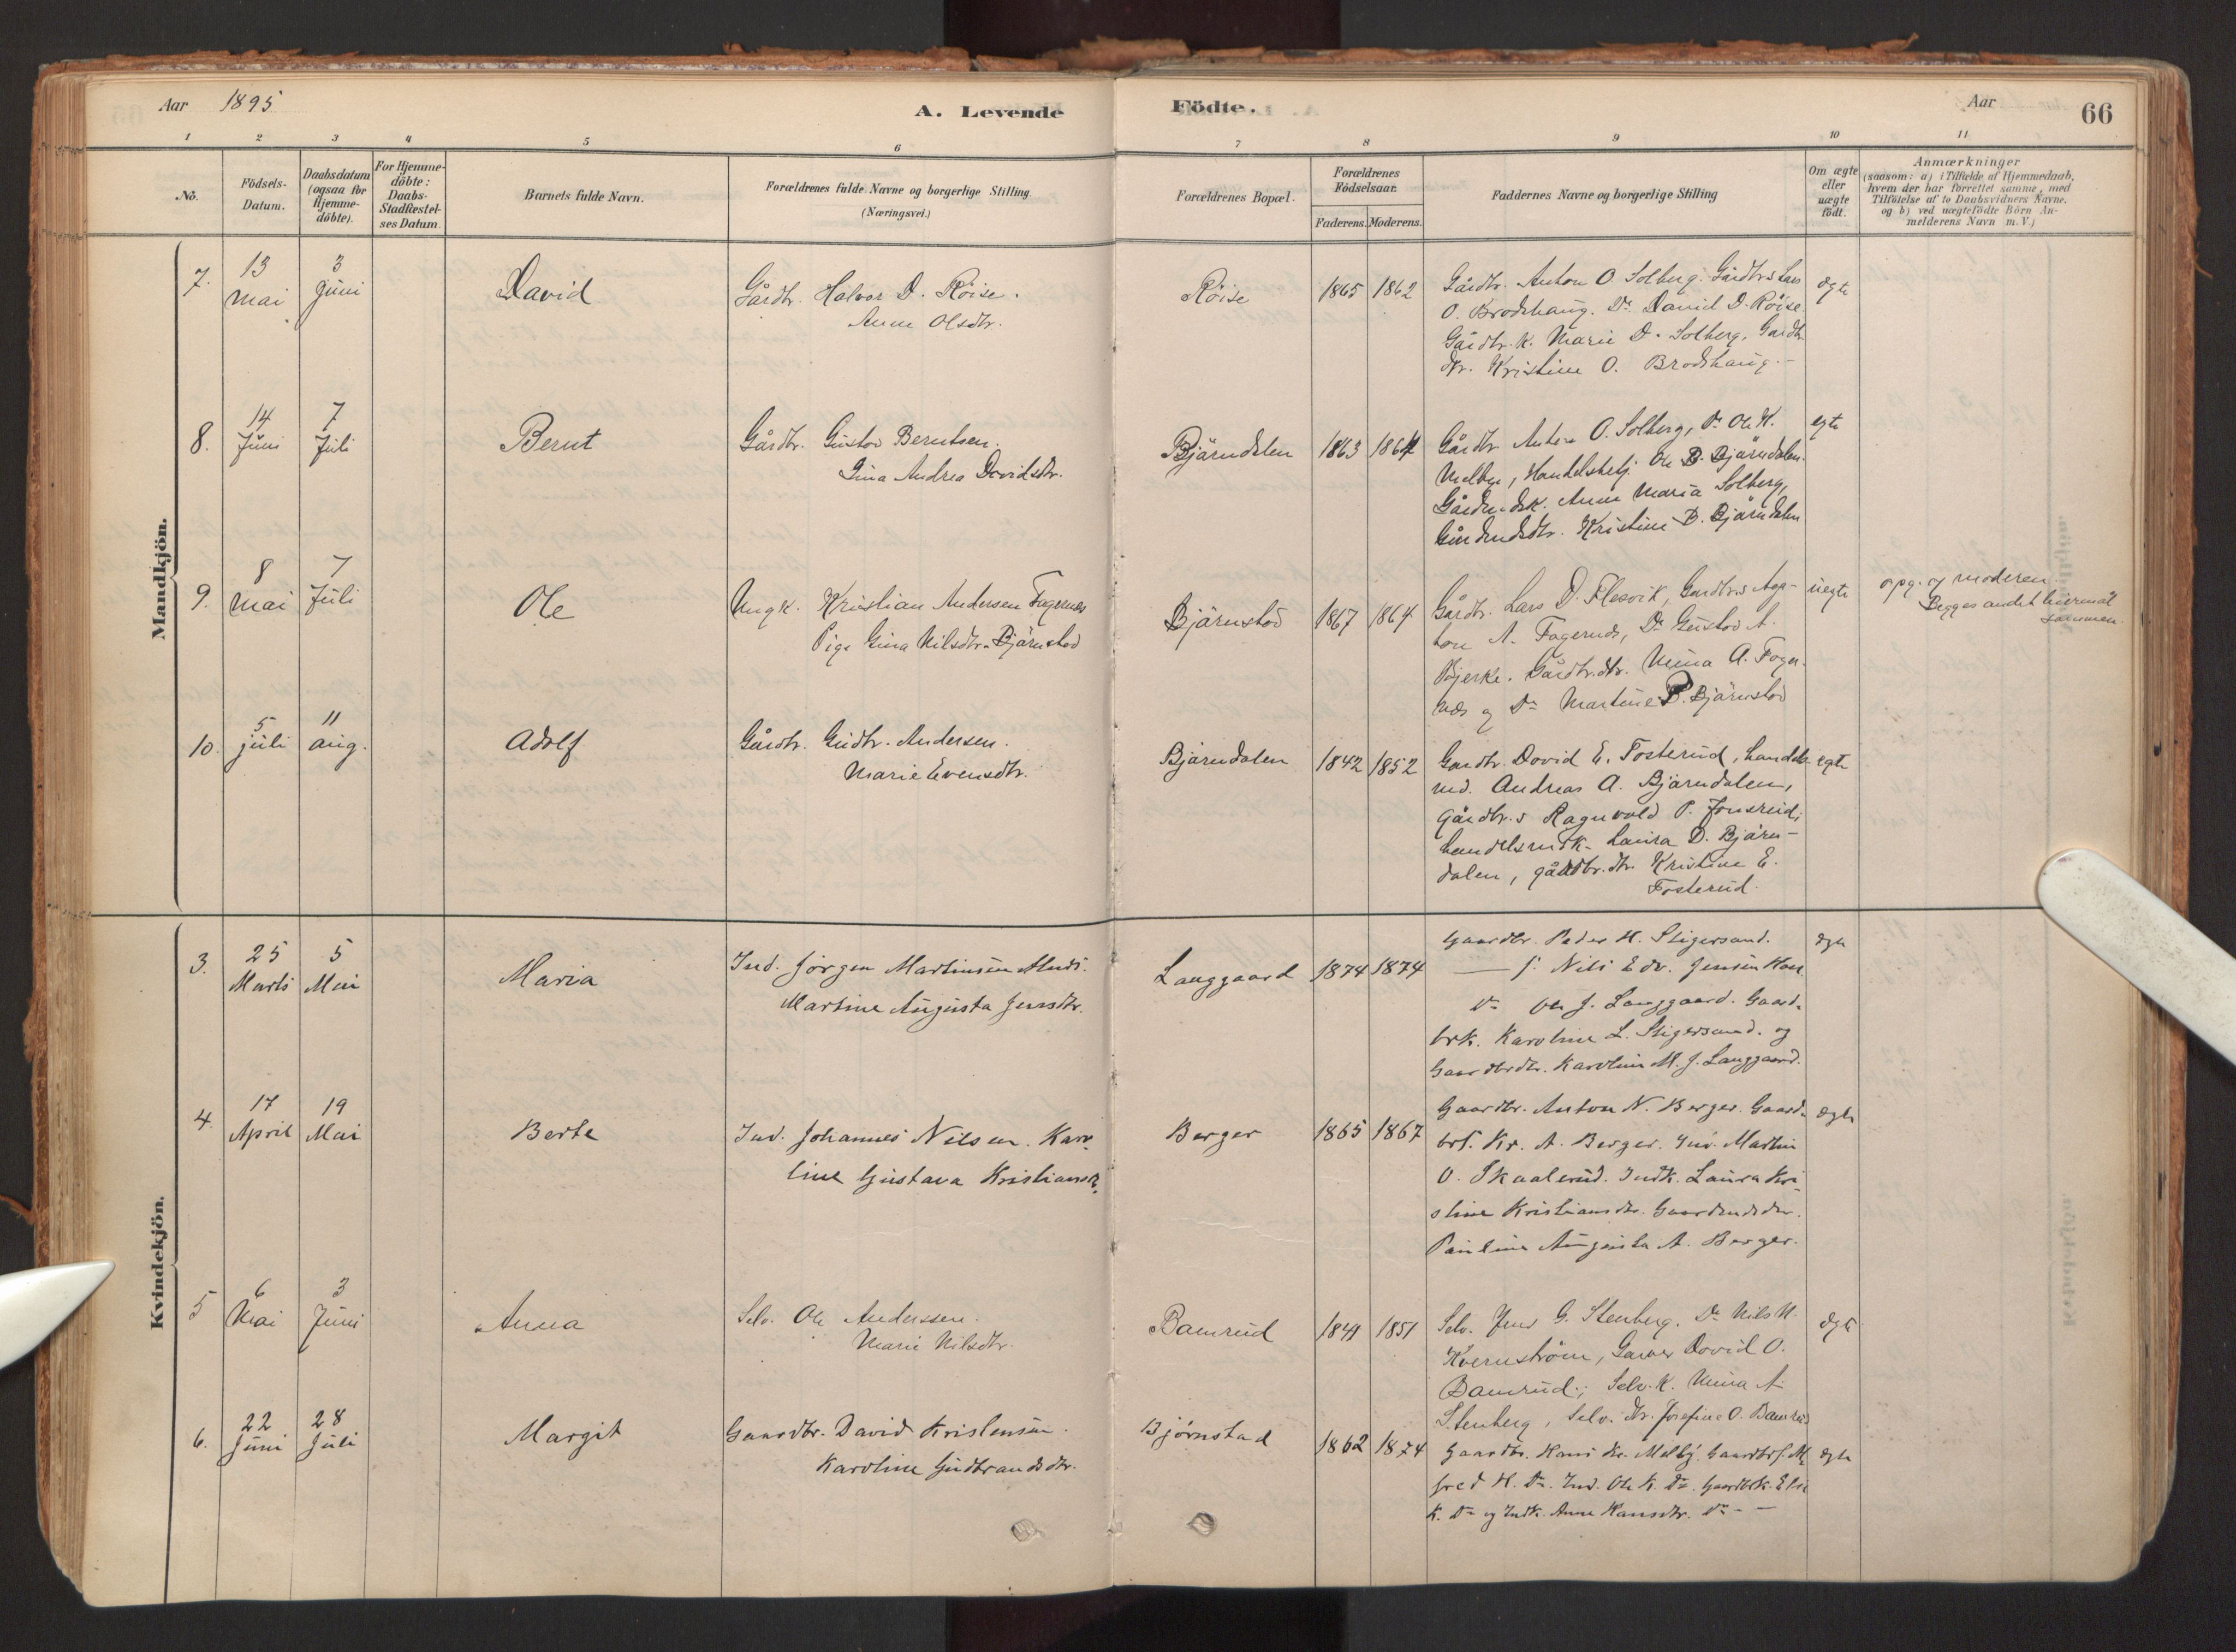 Aar 1895 A. Levende Födte. Aar 66
1 2 3 4 5 6 7 8 9 10 11
No.
Födsels-
Datum.
Daabsdatum
(ogsaa for
Hjemme-
döbte).
For Hjemme-
döbte:
Daabs-
Stadfæstel-
ses Datum.
Barnets fulde Navn.
Forældrenes fulde Navne og borgerlige Stilling
(Næringsvei.)
Forældrenes Bopæl.
Forældrenes
Födselsaar.
Faderens. Moderens.
Faddernes Navne og borgerlige Stilling
Om ægte
eller
uægte
födt.
Anmærkninger
(saasom: a) i Tilfælde af Hjemmedaab,
hvem der har forrettet samme, med
Tilföielse af to Daabsvidners Navne.
og b) ved uægtefödte Börn An-
melderens Navn m. V.)
Mandkjön.
7. 13 Mai 3 Juni David
Gårdbr. Halvor D. Röise.
Anne Olsdtr.
Röise 1865 1862
Gårdbr. Anton O. Solberg. Gårdbrs Lars
O. Brodshaug. Do David D. Röise
Gårdbr. K. Marie D. Solberg, Gardb
dtr. Kristine O. Brodshaug.-
ægte
8. 14 Juni 7 Juli Bernt
Gårdbr. Gustav Berntsen.
Gina Andrea Davidsdtr.
Bjärndalen 1863 1864
Gårdbr Anton O. Solberg, Do Ole K.
Melbye, Handelsbetj. Ole B. Bjärndalen.
Anne Maria Solberg,
Kristine B. Bjärndalen
egte
9. 8 Mai 7 Juli Ole
Ungk. Kristian Andersen Fagernes
Pige Gina Nilsdtr. Bjärnstad
Bjärnstad 1867 1864
Gårdbr. Lars D. Flesvik, Gardbrs Aga-
ton A. Fagernes, Do Gustav A.
Bjerke. Gårdbr.dtr. Mina A. Fager-
nes og Do Martine P. Bjärnstad
uegte
opg. og moderen
Begges andet leiermål
sammen.
10. 5 juli 11 aug. Adolf
Gårdbr. Gudbr. Andersen.
Marie Evensdtr.
Bjärndalen 1842 1852
Gardbr. David E. Fosterud, handels-
md. Andreas A. Bjärndalen,
gårdbr.s Ragnvald P. Jonsrud,
handelsmdk. Laura D. Bjärn-
dalen, gårdbr.dtr. Kristine E.
Fosterud.
egte
Kvindekjön.
3. 25 Marts 5 Mai Maria
Ind. Jörgen Martinsen
Martine Augusta Jensdtr.
Langgaard 1874 1874
Gaardbr. Peder H. Stigersand.
Nils Edv. Jensen
Do Ole J. Langgaard. Gaard-
brk. Karoline L. Stigersand. og
Gaardbrdtr. Karoline M. J. Langgaard.
ægte
4. 17 April 19 Mai Berte
Ind. Johannes Nilsen. Karo-
line Gustava Kristiansdtr.
Berger 1865 1867
Gaardbr. Anton N. Berger. Gaard-
brs. Kr. A. Berger. Ind. Martin
O. Skaalerud. Indk. Laura Kri-
stine Kristiansdtr.
Pauline Augusta A. Berger.
ægte
5 6 Mai 3 Juni Anna
Selv. Ole Anderssen.
Marie Nilsdtr.
Bamrud 1851
Selv. Jens G. Stenberg. Do Nils N.
Kvernström, Garver David O.
Bamrud.; Selv. K. Mina A.
Stenberg, Selv. dtr. Josefine O. Bamrud
ægte
6. 22 Juni 28 Juli Margit
Gaardbr. David Kristensen.
Karoline Gudbrandsdtr.
Bjørnstad 1862 1874
Gaardbr. Hans Kr. Melby. Gaardbrs. Al-
fred H. Do. Ind. Ole K. Do. Gaardbrk. Elise
K. Do og Indk. Anne Hansdtr. Do - -
ægte